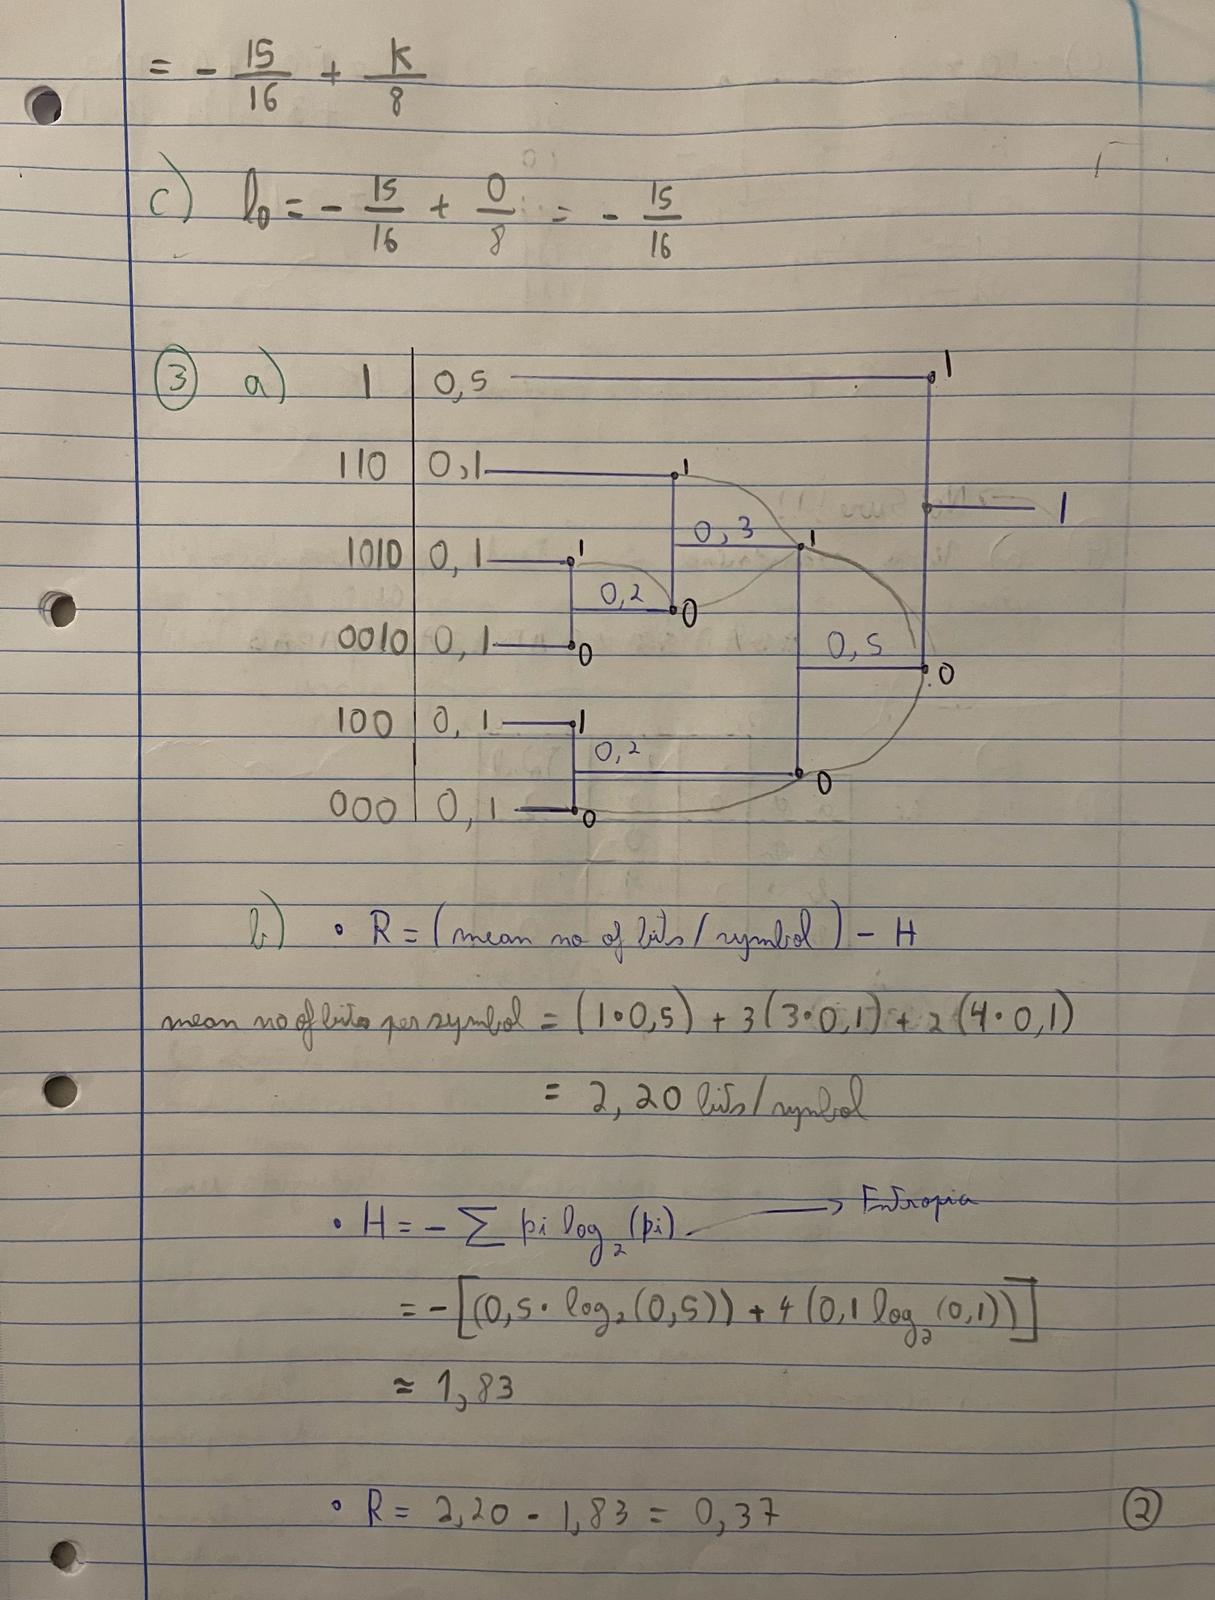 = - 15/16 + k/8
c) l₀ = - 15/16 + 0/8 = - 15/16
③ a) 1 | 0,5 1
110 | 0,1 1
1
0,3 1
1010 | 0,1 1
0,2 0
0010 | 0,1 0 0,5 0
100 | 0,1 1
0,2 0
000 | 0,1 0
b) • R = (mean no of bits/symbol) - H
mean no of bits per symbol = (1•0,5) + 3(3•0,1) + 2(4•0,1)
= 2,20 bits/symbol
• H = - Σ pi log₂(pi) → Entropia
= -[(0,5 • log₂(0,5)) + 4(0,1 log₂(0,1))]
≈ 1,83
• R = 2,20 - 1,83 = 0,37 ②